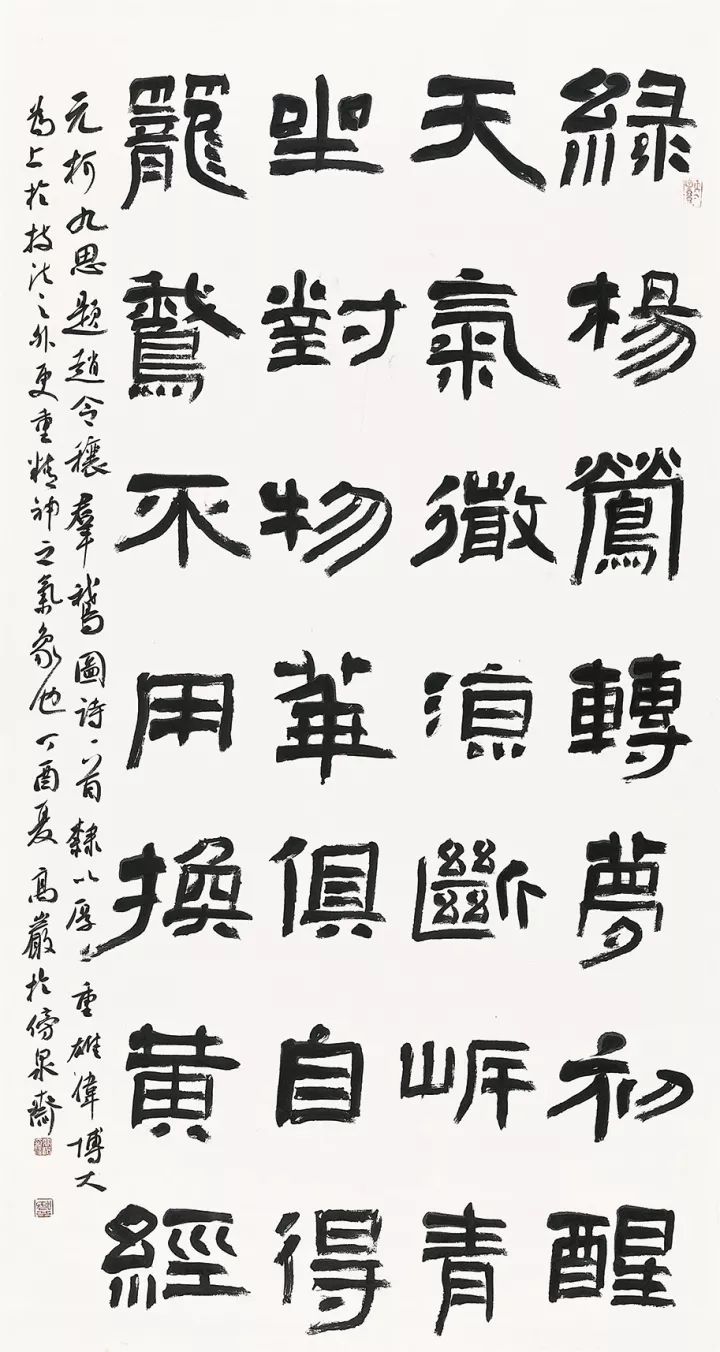 綠楊鶯轉夢初醒
天氣微涼斷岸青
坐對物華俱自得
籠鵞不用換黃經
元柯九思題趙令穰羣鵝圖詩一首隸以厚重雄偉博大
為上於技法之外更重精神之氣象也丁酉夏高巖於傍泉齋